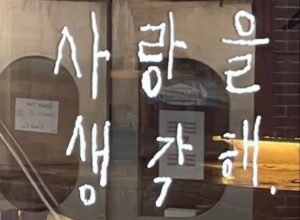 사랑을
생각해.